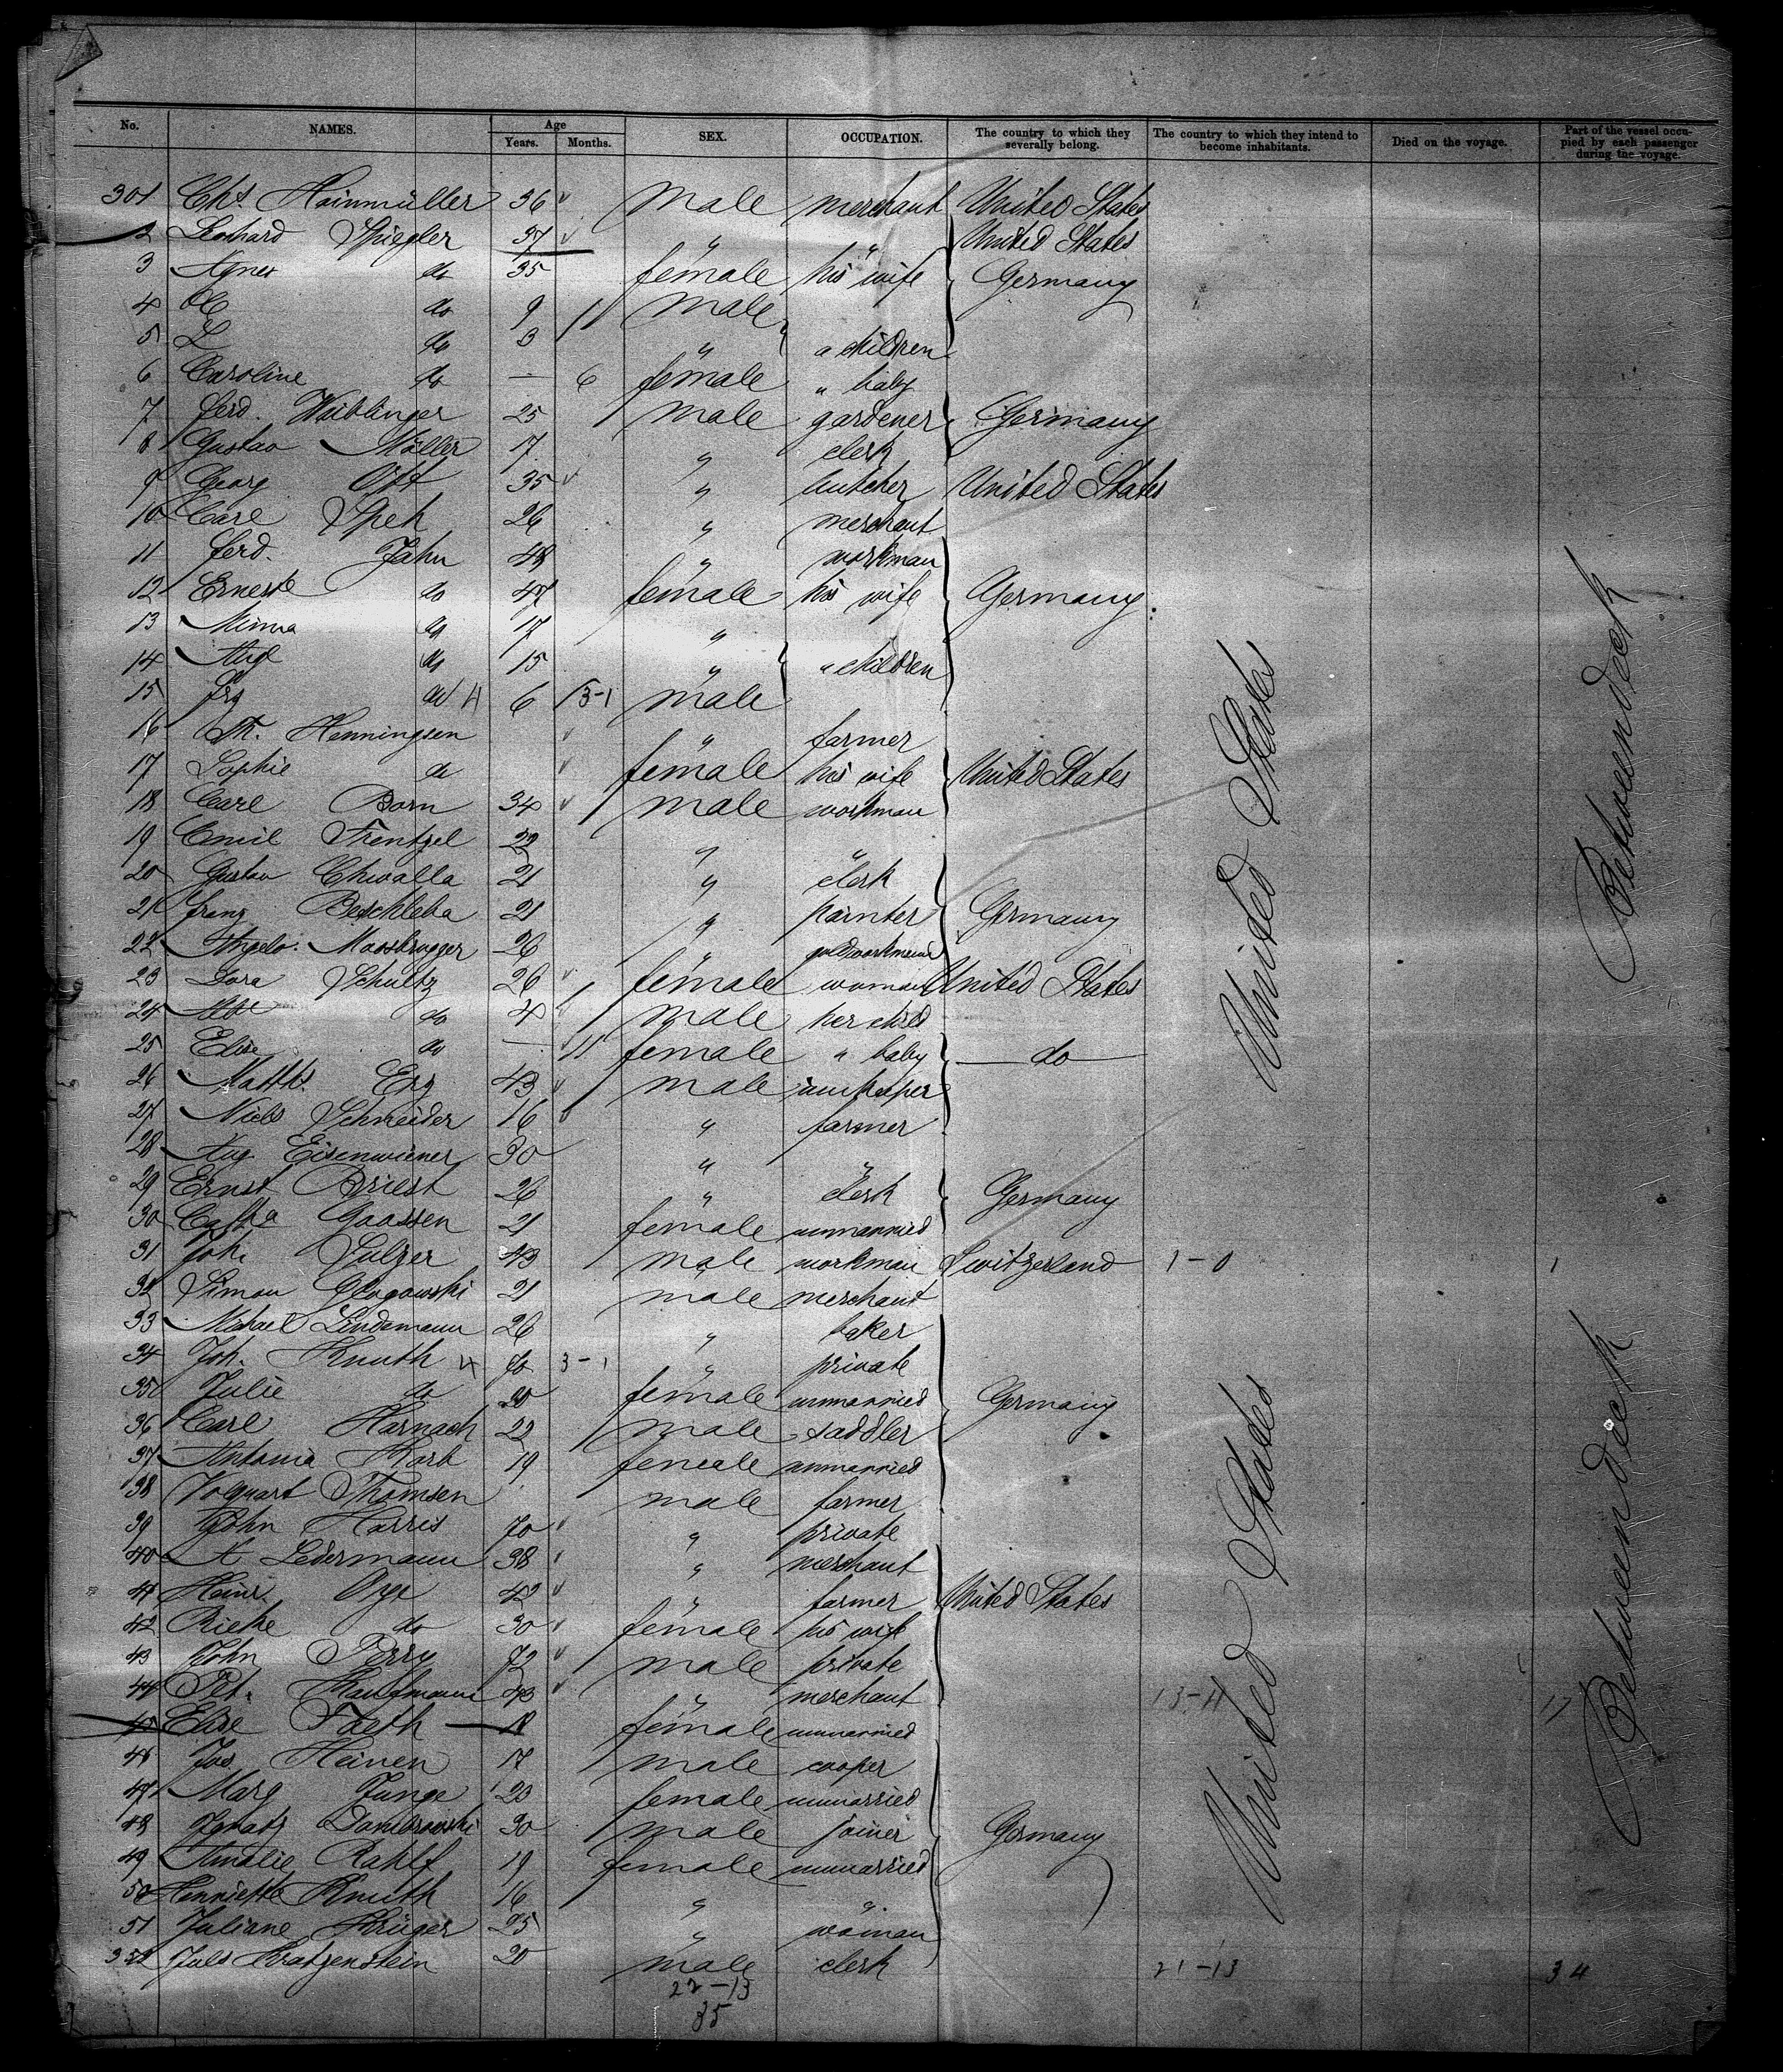 No. NAMES. Age Years. Months. SEX. OCCUPATION. The country to which they severally belong. The country to which they intend to become inhabitants. Died on the voyage. Part of the vessel occupied by each passenger during the voyage.
301 Cht. Heinmüller 36 male merchant United States
2 Leonhard Spiegler 37 " " United States
3 Agnes do 35 female his wife Germany
4 do 9 male
5 L do 3 " " children
6 Caroline do — 6 female " baby
7 Ferd. Waiblinger 25 male gardener Germany
8 Gustav Müller 17 " clerk
9 Georg Ott 35 " butcher United States
10 Carl Speh 26 " merchant
11 Ferd. Jahn 48 " workman
12 Erneste do 47 female his wife Germany
13 Minna do 17 "
14 Aug do 15 " " children
15 do 6 male
16 Th. Henningsen " farmer
17 Sophie do female his wife United States
18 Carl Born 34 male workman
19 Emil Frentzel 22 " "
20 Gustav Chwalla 21 " clerk
21 Franz Beschleba 21 " painter Germany
22 Angelo Moosbrugger 26 " goldworkman
23 Dora Schultz 26 female woman United States
24 do 4 male her child
25 Elise do — 11 female " baby do
26 Matths. Erz 43 male innkeeper
27 Niels Schneider 16 " farmer
28 Aug Eisenwiener 30 " "
29 Ernst Briest 26 " clerk Germany
30 Cath'a Goossen 21 female unmarried
31 Joh. Sulzer 43 male workman Switzerland 1-0 1
32 Simon Glogowski 21 male merchant
33 Michael Lindemann 26 " baker
34 Joh. Knuth 70 3-1 " private
35 Julie do 20 female unmarried Germany
36 Carl Harnach 22 male saddler
37 Antonia Korb 19 female unmarried
38 Volquart Thomsen male farmer
39 John Harris 70 " private
40 A Ledermann 38 " merchant
41 Heinr. 42 " farmer United States
42 Rieke do 30 female his wife
43 John Perry 72 male private
44 Pet. Kaufmann 43 " merchant 13-4 17
45 Elise Faeth 18 female unmarried
46 Jos Heinen 17 male cooper
47 Marg Junge 20 female unmarried
48 Ignatz Dombrowski 30 male joiner Germany
49 Amalie Rahlf 19 female unmarried
50 Henriette Knuth 16 " "
51 Juliane Krüger 25 " woman
352 Juls Kratzenstein 20 male clerk 21-13 34
22-13
35
United States
Betweendeck
United States
Betweendeck